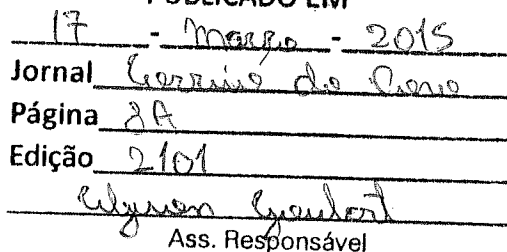 PUBLICADO EM
17 - Março - 2015
Jornal Correio do Povo
Página 8A
Edição 2101
Ass. Responsável